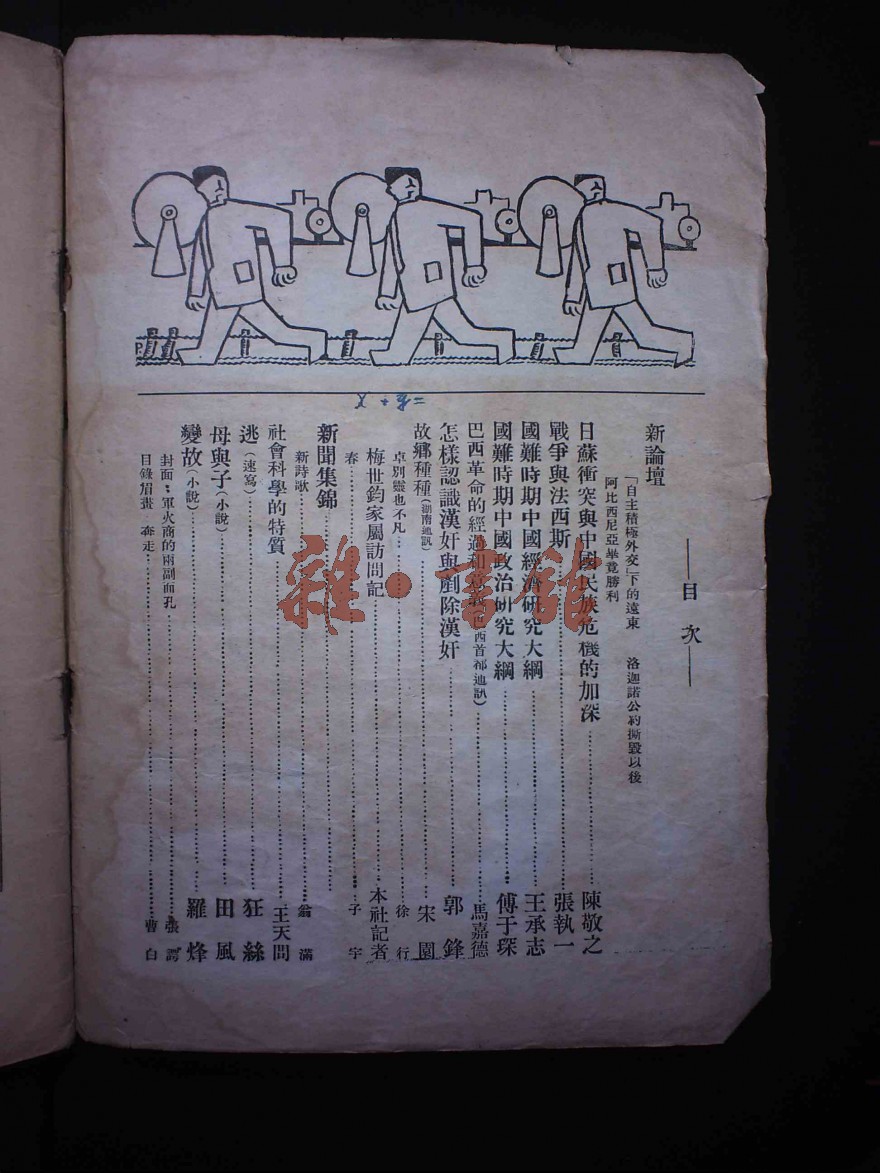 ——目 次——
新論壇
「自主積極外交」下的遠東 洛迦諾公約撕毀以後
阿比西尼亞畢竟勝利
日蘇衝突與中國民族危機的加深…………陳敬之
戰爭與法西斯…………張執一
國難時期中國經濟研究大綱…………王承志
國難時期中國政治研究大綱…………傅于琛
巴西革命的經過和意義(巴西首都通訊)…………馬嘉德
怎樣認識漢奸與剷除漢奸…………郭 鋒
故鄉種種(湖南通訊)…………宋 園
卓別靈也不凡…………徐 行
梅世鈞家屬訪問記…………本社記者
春…………子 宇
新聞集錦
新詩歌…………翁 滿
社會科學的特質…………王天問
逃(速寫)…………狂 絲
母與子(小說)…………田 風
變故(小說)…………羅 烽
封面:軍火商的兩副面孔…………張 諤
目錄眉畫 奔走…………曹 白
雜·書館